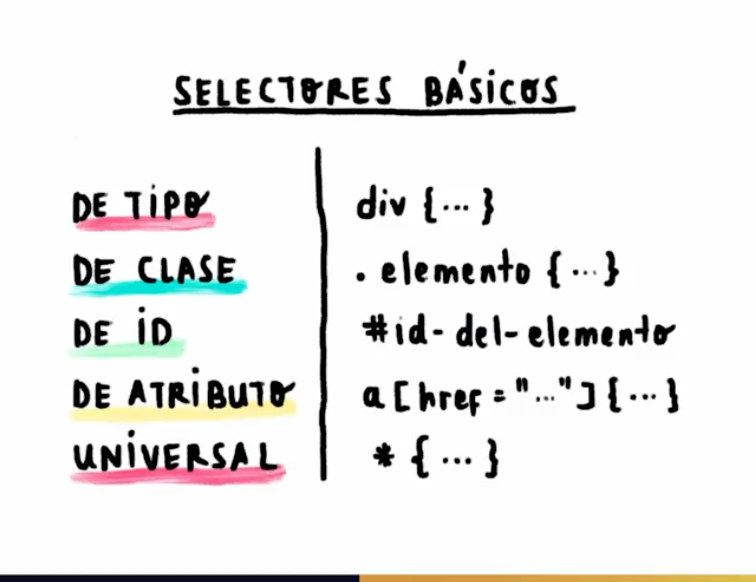 SELECTORES BÁSICOS
DE TIPO div {...}
DE CLASE . elemento {...}
DE ID #id-del-elemento
DE ATRIBUTO a[href="..."]{...}
UNIVERSAL * {...}